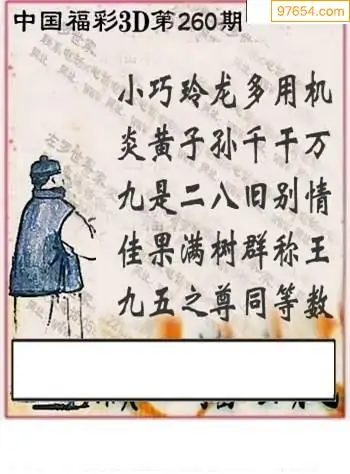 97654.com
中国福彩3D第260期
小巧玲龙多用机
炎黄子孙千千万
九是二八旧别情
佳果满树群称王
九五之尊同等数